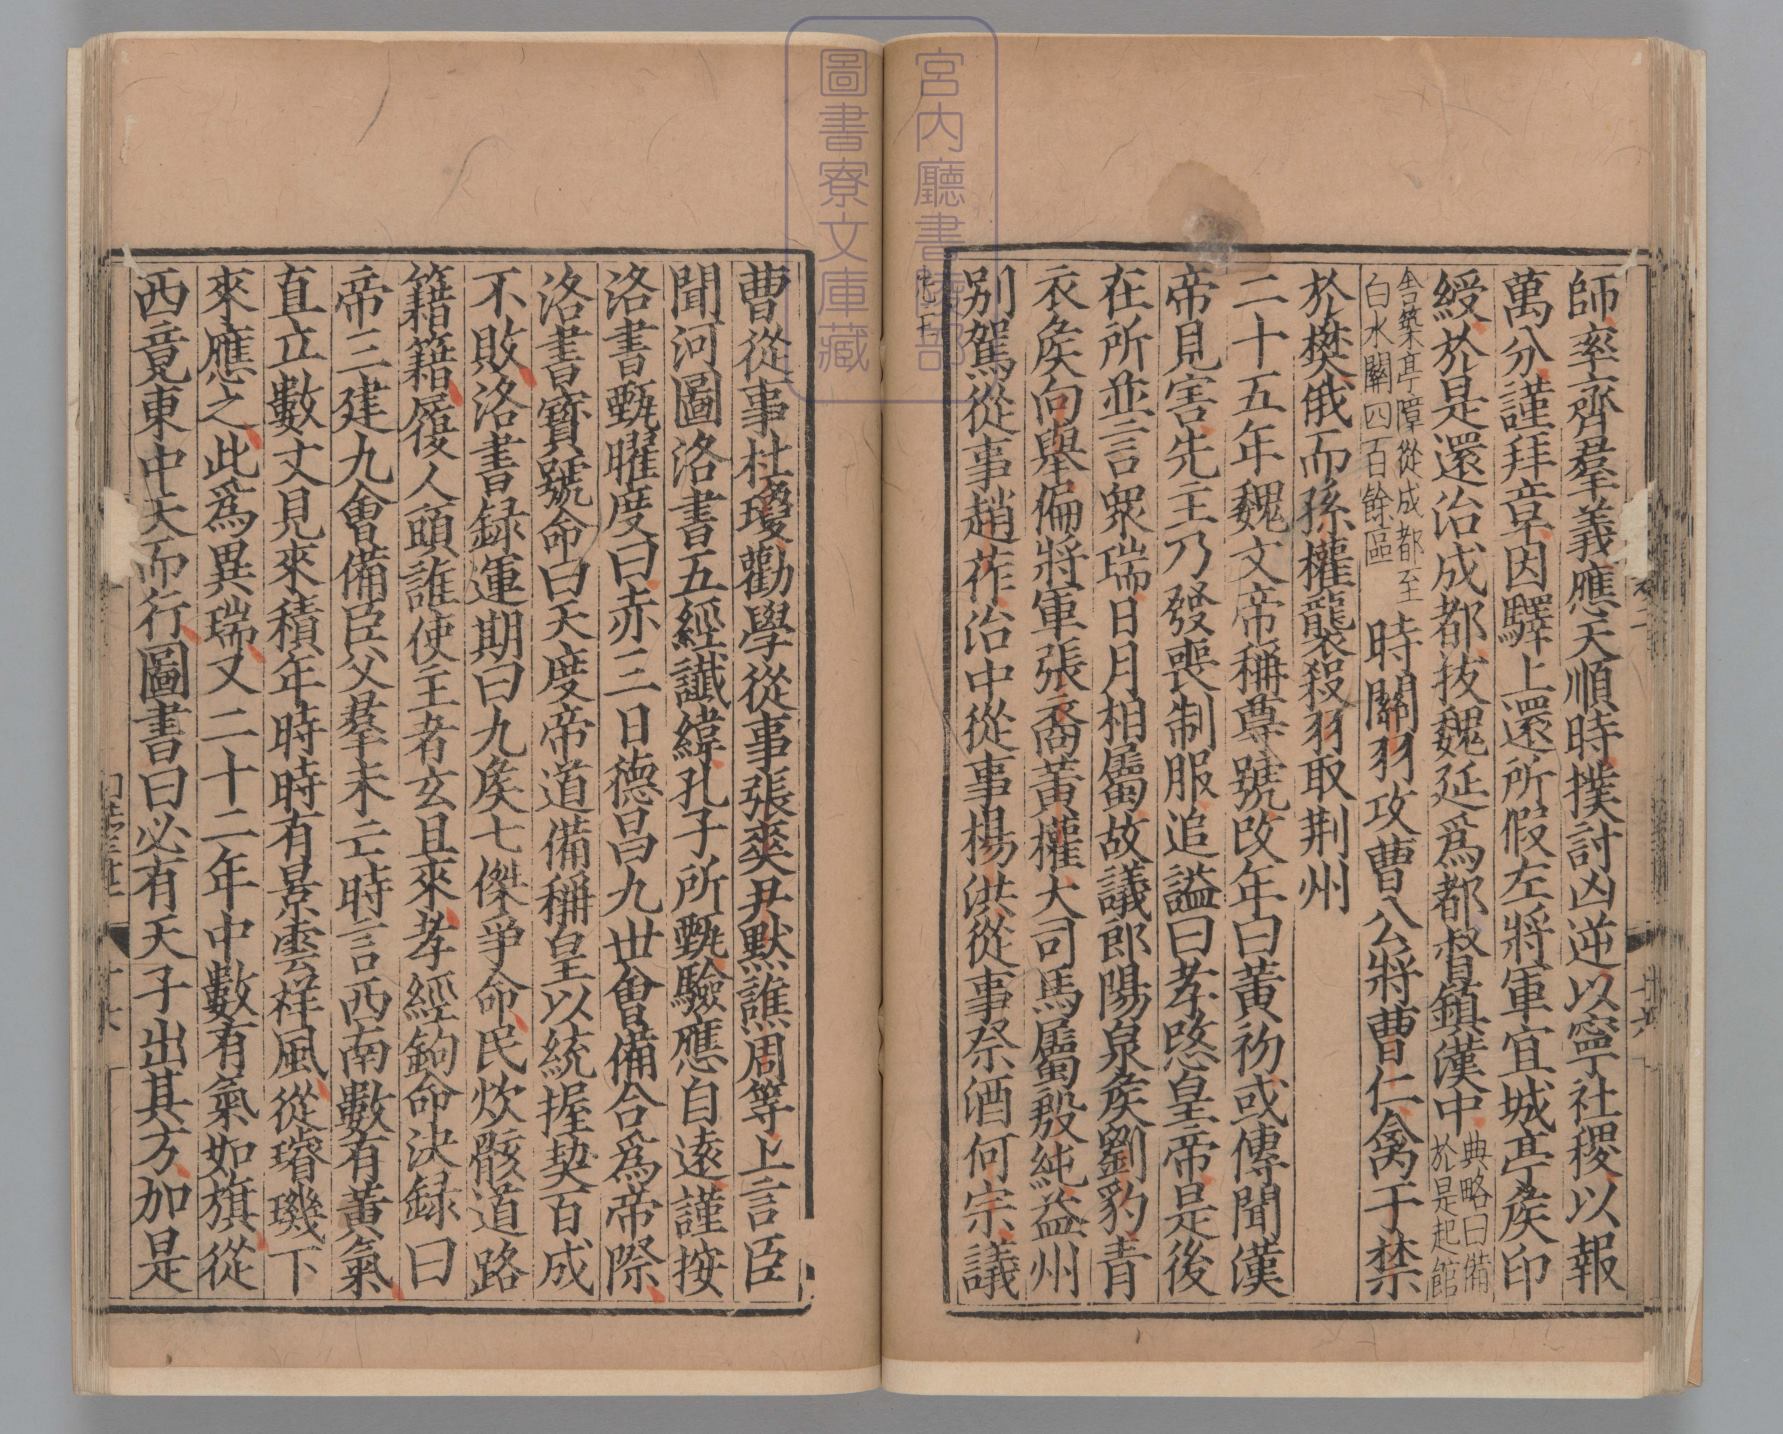 師率齊羣義應天順時撲討凶逆以寧社稷以報
萬分謹拜章因驛上還所假左將軍宜城亭侯印
綬於是還治成都拔魏延爲都督鎮漢中典略曰備於是起館
舍築亭障從成都至白水關四百餘區時關羽攻曹公將曹仁禽于禁
於樊俄而孫權襲殺羽取荆州
二十五年魏文帝稱尊號改年曰黃初或傳聞漢
帝見害先主乃發喪制服追謚曰孝愍皇帝是後
在所並言衆瑞日月相屬故議郎陽泉侯劉豹青
衣侯向舉偏將軍張裔黃權大司馬屬殷純益州
別駕從事趙莋治中從事楊洪從事祭酒何宗議
曹從事杜瓊勸學從事張爽尹默譙周等上言臣
聞河圖洛書五經讖緯孔子所甄驗應自遠謹按
洛書甄曜度曰赤三日德昌九世會備合爲帝際
洛書寶號命曰天度帝道備稱皇以統握契百成
不敗洛書録運期曰九侯七傑爭命民炊骸道路
籍籍履人頭誰使主者玄且來孝經鉤命決録曰
帝三建九會備臣父羣未亡時言西南數有黃氣
直立數丈見來積年時時有景雲祥風從璿璣下
來應之此爲異瑞又二十二年中數有氣如旗從
西竟東中天而行圖書曰必有天子出其方加是
宮内廳書陵部
圖書寮文庫藏